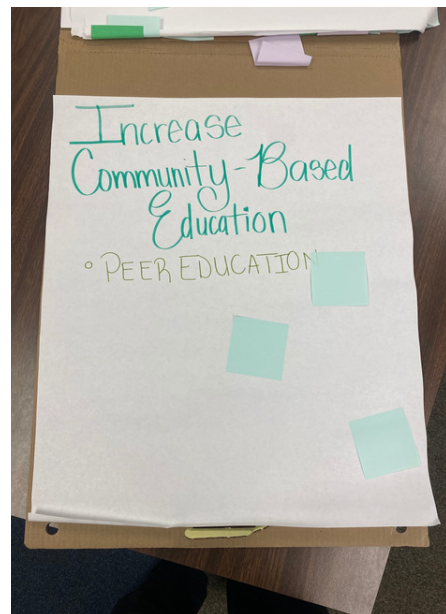 Increase
Community-Based
Education
° PEER EDUCATION